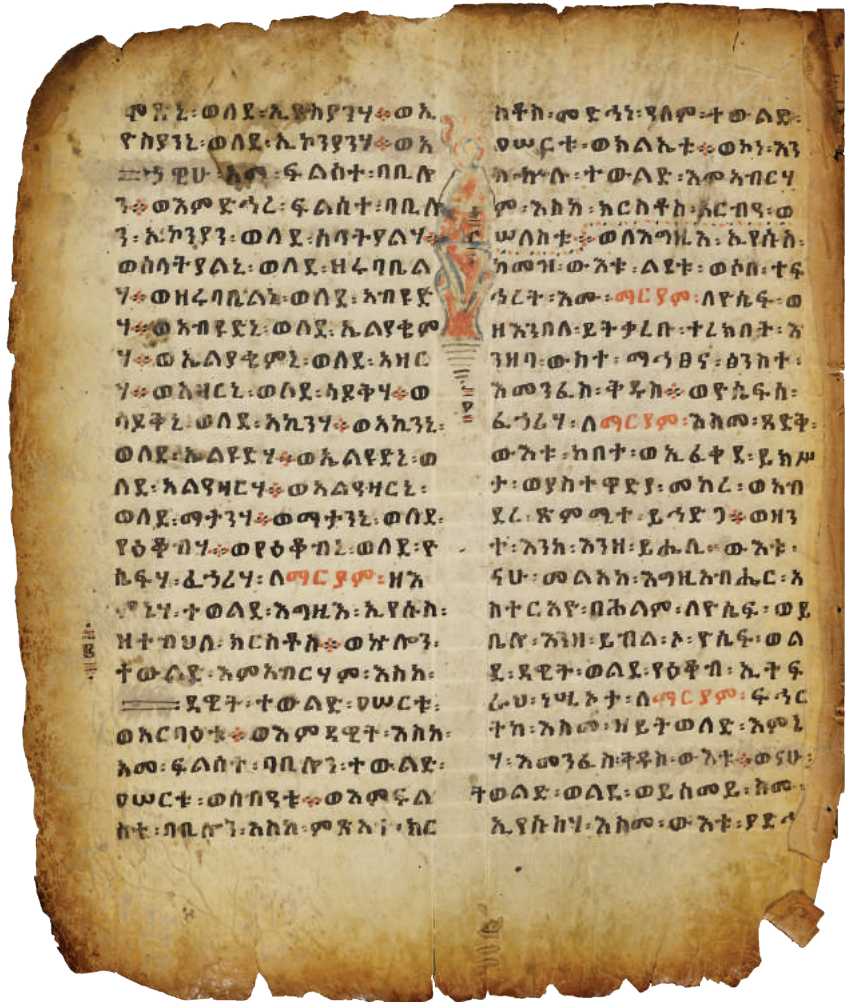 ሞጽኒ፡ወለደ፡ኢዮስያንሃ፨ወኢ
ዮስያንኒ፡ወለደ፡ኢኮንያንሃ፨ወአ
ኃዊሁ፡አመ፡ፍልሰተ፡ባቢሎ
ን፨ወእምድኅረ፡ፍልሰተ፡ባቢሎ
ን፡ኢኮንያን፡ወለደ፡ሰላትያልሃ፨
ወሰላትያልኒ፡ወለደ፡ዘሩባቤል
ሃ፨ወዘሩባቤልኒ፡ወለደ፡አብዩድ
ሃ፨ወአብዩድኒ፡ወለደ፡ኤልያቄም
ሃ፨ወኤልያቄምኒ፡ወለደ፡አዛር
ሃ፨ወአዛርኒ፡ወለደ፡ሳደቅሃ፨ወ
ሳደቅኒ፡ወለደ፡አኪንሃ፨ወአኪንኒ፡
ወለደ፡ኤልዩድሃ፨ወኤልዩድኒ፡ወ
ለደ፡አልዓዛርሃ፨ወአልዓዛርኒ፡
ወለደ፡ማታንሃ፨ወማታንኒ፡ወለደ፡
ያዕቆብሃ፨ወያዕቆብኒ፡ወለደ፡ዮ
ሴፍሃ፡ፈኃሪሃ፡ለማርያም፡ዘእ
ምኔሃ፡ተወልደ፡እግዚእ፡ኢየሱስ፡
ዘተብህለ፡ክርስቶስ፨ወኵሎን፡
ተውልድ፡እምአብርሃም፡እስከ፡
ዳዊት፡ተውልድ፡፲ወ፬ርቱ፡
ወአርባዕቱ፨ወእምዳዊት፡እስከ፡
አመ፡ፍልሰተ፡ባቢሎን፡ተውልድ፡
ዐሠርቱ፡ወሰብዓቱ፨ወእምፍል
ሰተ፡ባቢሎን፡እስከ፡ምጽአተ፡ክር
ስቶስ፡መድኅነ፡ዓለም፡ተውልድ፡
ዐሠርቱ፡ወክልኤቱ፨ወኮነ፡እን
ከ፡ኵሉ፡ተውልድ፡እምአብርሃ
ም፡እስከ፡ክርስቶስ፡አርብዓ፡ወ
ሠለስቱ፨ወለእግዚእ፡ኢየሱስ፡
ከመዝ፡ውእቱ፡ልደቱ፡ወሶበ፡ተፍ
ኅረት፡እሙ፡ማርያም፡ለዮሴፍ፡ወ
ዘእንበለ፡ይትቃረቡ፡ተረክበት፡እ
ንዘባ፡ውስተ፡ማኅፀና፡ፅንስተ፡
እመንፈስ፡ቅዱስ፨ወዮሴፍሰ፡
ፈኃሪሃ፡ለማርያም፡እስመ፡ጻድቅ፡
ውእቱ፡ከበተ፡ወኢፈቀደ፡ይክሥ
ታ፡ወያስተዋድያ፡መከረ፡ወአብ
ደረ፡ጽምሚተ፡ይኅድጋ፨ወዘን
ተ፡እንከ፡እንዘ፡ይሔሊ፡ውእቱ፡
ናሁ፡መልአከ፡እግዚአብሔር፡አ
ስተርአዮ፡በሕልም፡ለዮሴፍ፡ወይ
ቤሎ፡እንዘ፡ይብል፡ኦ፡ዮሴፍ፡ወል
ደ፡ዳዊት፡ወልደ፡ያዕቆብ፡ኢትፍ
ራህ፡ነሢኦታ፡ለማርያም፡ፍኅር
ትከ፡እስመ፡ዘይትወለድ፡እምኔ
ሃ፡እመንፈስ፡ቅዱስ፡ውእቱ፨ወናሁ፡
ትወልድ፡ወልደ፡ወይሰመይ፡ስሙ፡
ኢየሱስሃ፡እስመ፡ውእቱ፡ያድኅ